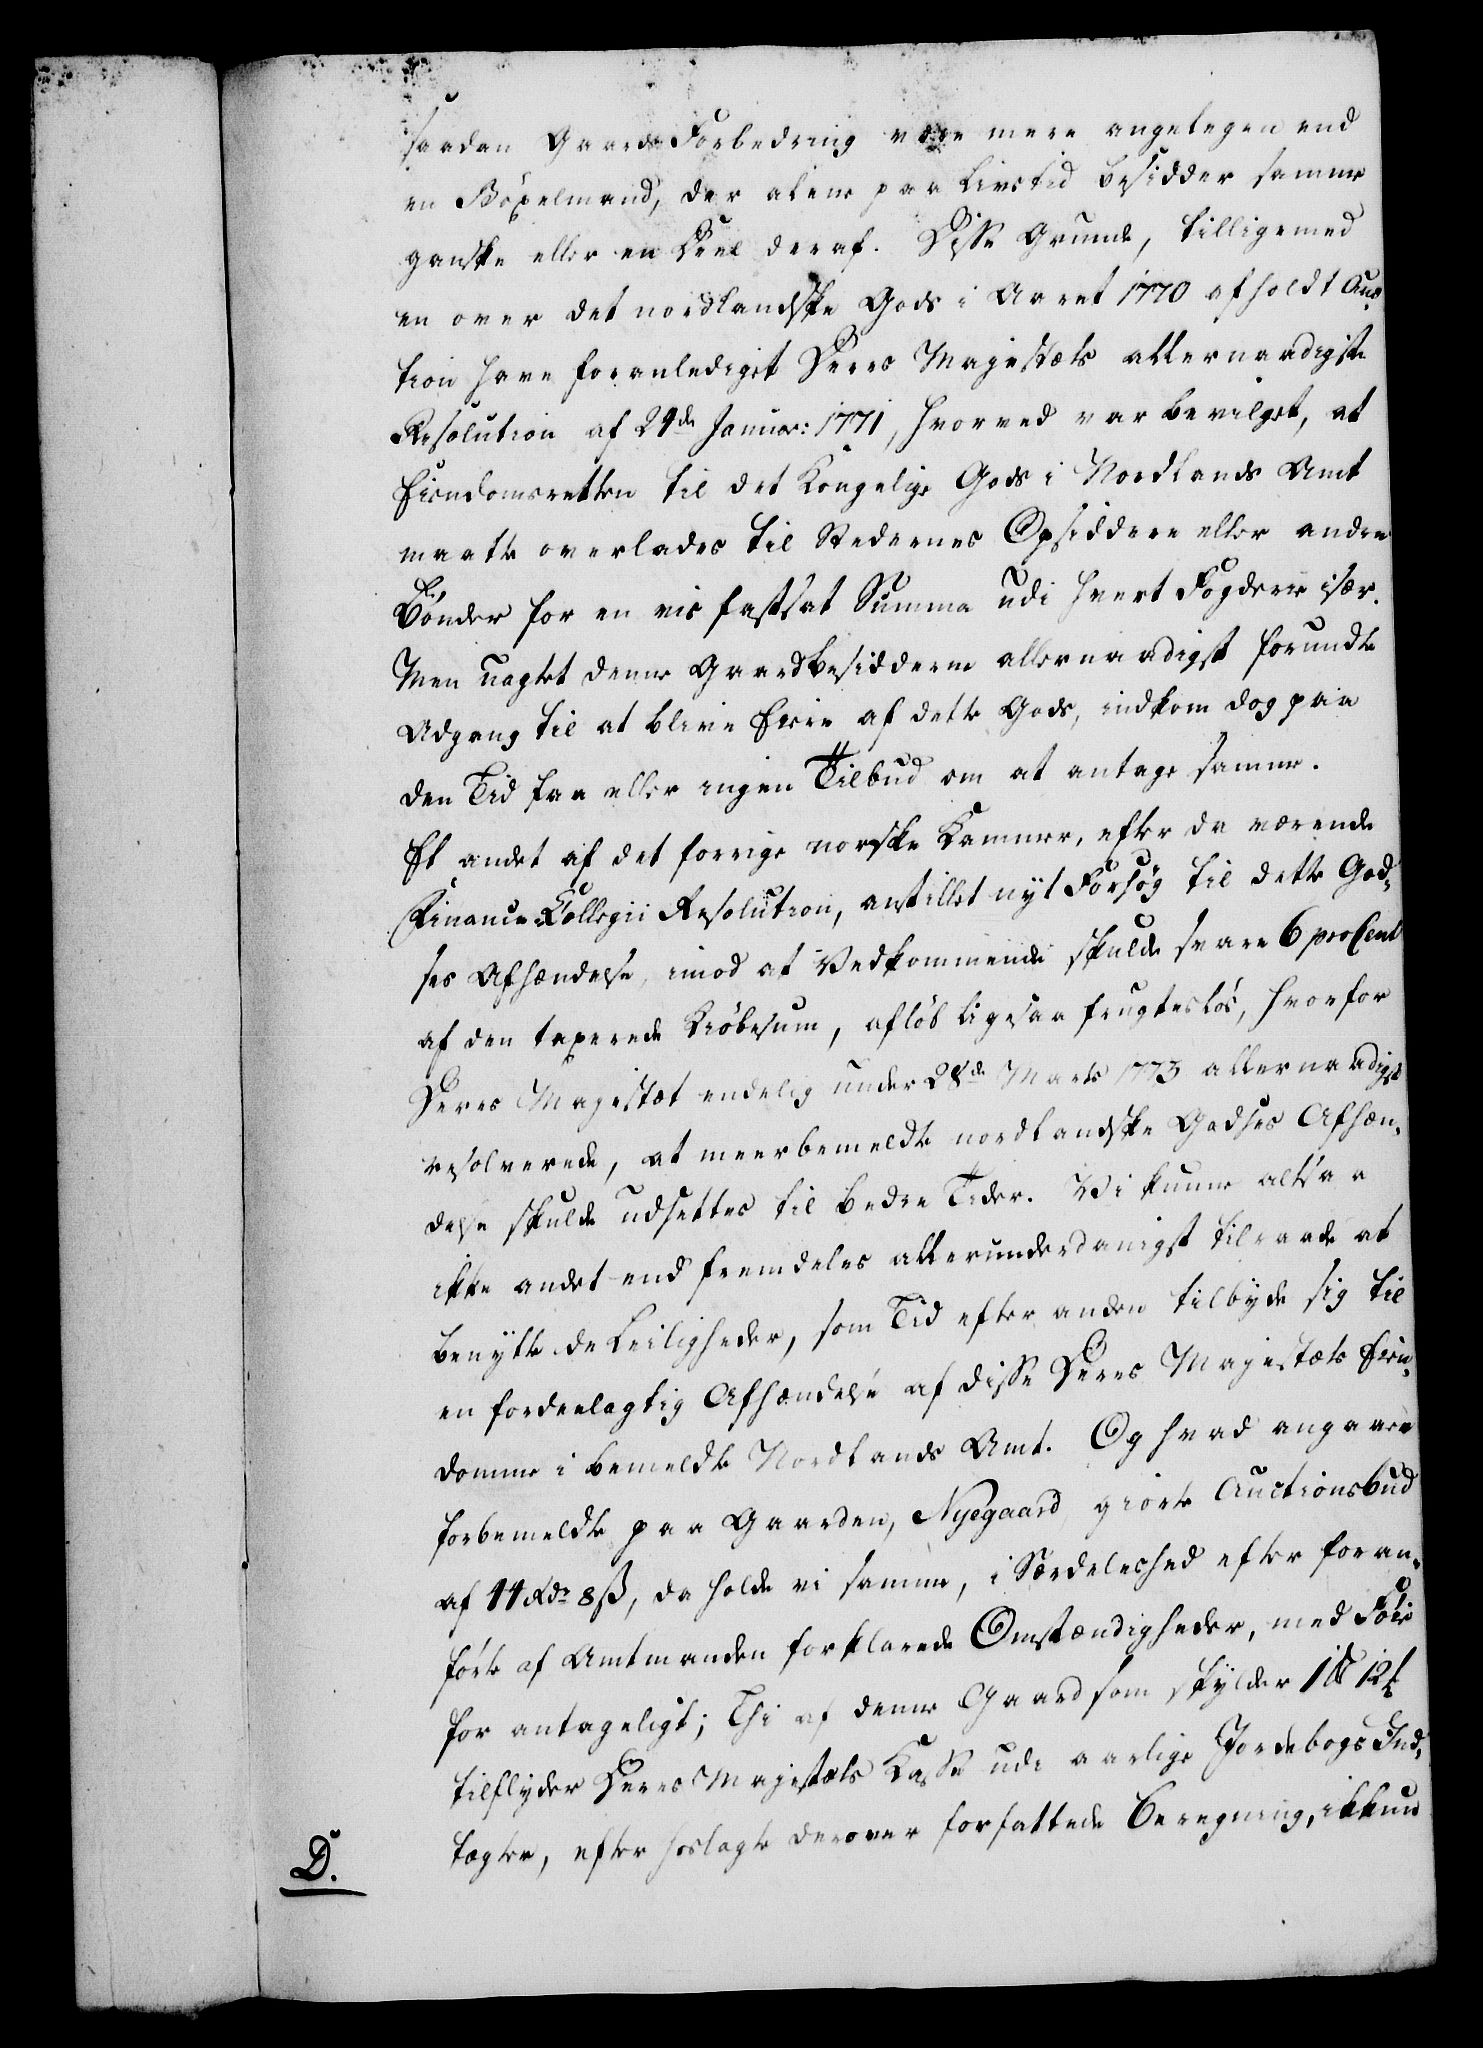 saadan Gaards Forbedring være mere angelegen end
en Böxelmand, der alene paa Livstid besidder samme
ganske eller en Deel deraf. Disse Grunde, tilligemed
en over det nordlandske Gods i Aaret 1770 afholdt Auc-
tion have foranlediget Deres Majestæts allernaadigste
Resolution af 24de Januar: 1771, hvorved var bevilget, at
Eiendomsretten til det Kongelige Gods i Nordlands Amt
maatte overlades til Stedernes Opsiddere eller andre
Bönder for en vis fastsat Summa udi hvert Fogderie især.
Men uagtet denne Gaardbesidderne allernaadigst forundte
Adgang til at blive Eiere af dette Gods, indkom dog paa
den Tid faa eller ingen Tilbud om at antage samme.
Et andet af det forrige norske Kammer, efter da værende
Finance-Collegii Resolution, anstillet nyt Forsøg til dette God-
ses Afhændelse, imod at Vedkommende skulde svare 6 proCent
af den taxerede Kiöbesum, aflöb ligesaa frugteslös, hvorfor
Deres Majestæt endelig under 28de Marts 1773 allernaadigst
resolverede, at meerbemeldte nordlandske Godses Afhæn-
delse skulde udsættes til bedre Tider. Vi kunne altsaa
ikke andet end fremdeles allerunderdanigst tilraade at
benytte de Leiligheder, som Tid efter anden tilbyde sig til
en fordeelagtig Afhændelse af disse Deres Majestæts Eien-
domme i bemeldte Nordlands Amt. Og hvad angaaer
forbemeldte paa Gaarden, Nyegaard giorte Auctionsbud
af 44 Rdr 8 ß, da holde vi samme, i Særdeleshed efter foran-
förte af Amtmanden forklarede Omstændigheder, med Föie
for antageligt; Thi af denne Gaard som skylder 1 ℔ 12 ₰
tilflyder Deres Majestæts Kasse udi aarlige Jordebogs Ind-
tægter, efter hoslagte derover forfattede Beregning, ikkun
D.